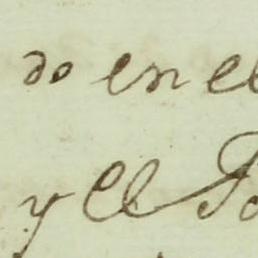 do en el
y el